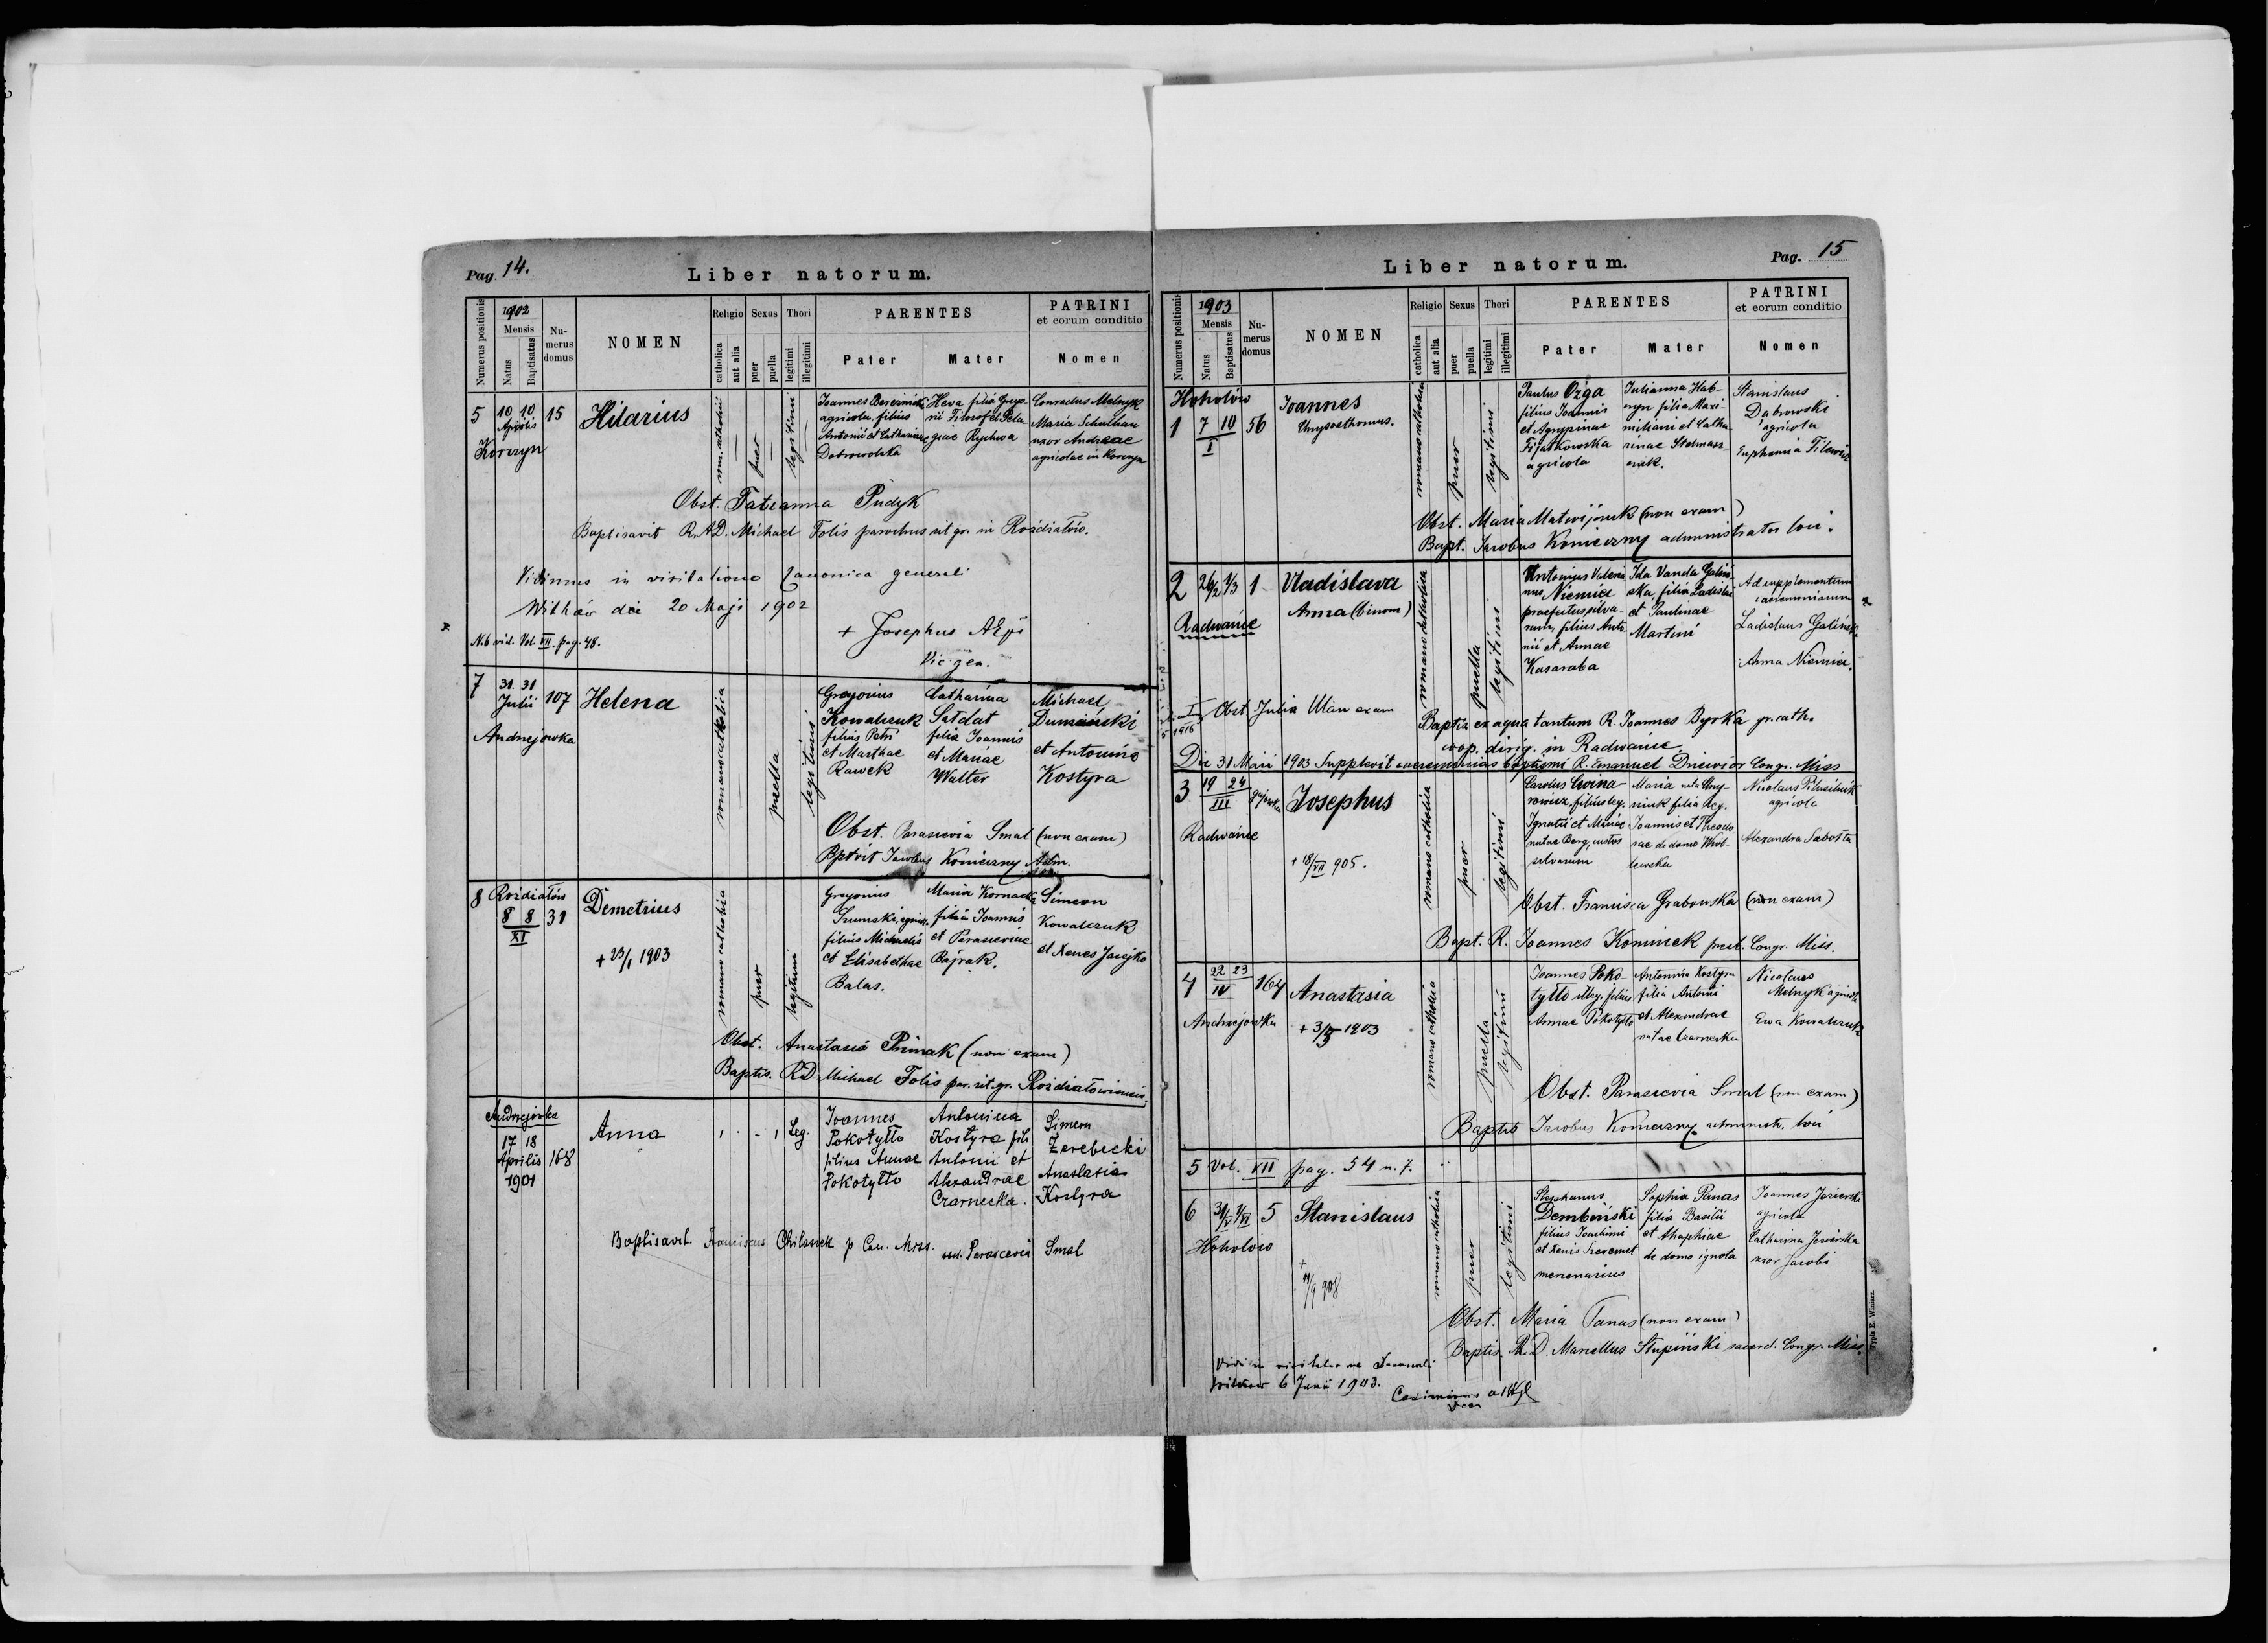 Pag. 14.
Liber natorum.
Numerus positionis
1902
Mensis
Natus
Baptisatus
Nu-
merus
domus
NOMEN
Religio
catholica
aut alia
Sexus
puer
puella
Thori
legitimi
illegitimi
PARENTES
Pater
Mater
PATRINI
et eorum conditio
Nomen
5 10 10 Aprilis 15 Hilarius
Korczyn
puer
legitimi
Joannes Bereznicki
agricola, filius
Antonii et Catharinae
Dobrowolska
Heva filia
Filosof et Pela-
giae
Conradus Melnyk
Maria
uxor Andreae
agricolae in Korczyn
Obst. Tatianna Pudyk
Baptisavit R.A.D. Michael Folis parochus rit gr. in Rozdiatów.
Vidimus in visitatione Canonica generali
Witków die 20 Maji 1902
+ Josephus AEpps
Vic. gen.
N. 6 vid. Vol. VII. pag. 48.
7 31 31 Julii 107 Helena
Andrzejówka
romano catholica
puella
legitimi
Gregorius
Kowalczuk
filius Petri
et Marthae
Rawek
Catharina
Sałdat
filia Joannis
et Mariae
Walter
Michael
Dumański
et Antonina
Kostyra
Obst. Parascevia Smal (non exam)
Bptvit Jacobus Konieczny Adm.
8 Rozdiatów
8 8 XI 31 Demetrius
+ 23/1 1903
romano catholica
puer
legitimi
Gregorius
filius Michaelis
et Elisabethae
Balas.
Maria Kornacka
filia Joannis
et Parasceviae
Bajrak.
Simeon
Kowalczuk
et Xenes
Obst. Anastasia Primak (non exam)
Baptis. R.D. Michael Folis par. rit. gr. Rozdiatowiensis.
Andrzejówka
17 18
Aprilis 168
1901
Anna
Leg.
Joannes
Pokotyłło
filius Annae
Pokotyłło
Antonina
Kostyra fili
Antonii et
Alexandrae
Czarnecka.
Simeon
Zerebecki
Anastasia
Kostyra
Baptisavit Franciscus Chilasek p Con. Miss. Parascevia Smal
Pag. 15
Liber natorum.
Numerus positionis
1903
Mensis
Natus
Baptisatus
Nu-
merus
domus
NOMEN
Religio
catholica
aut alia
Sexus
puer
puella
Thori
legitimi
illegitimi
PARENTES
Pater
Mater
PATRINI
et eorum conditio
Nomen
Hohołów
1 7 10 I 56 Joannes
Chrysosthomus.
romano catholica
puer
legitimi
Paulus Ożga
filius Joannis
et Agrypinae
Fijałkowska
agricola
Julianna Hab-
ryn filia Maxi-
miliani et Catha-
rinae Stelmasz-
czuk.
Stanislaus
Dąbrowski
agricola
Euphemia Filewicz
Obst. Maria Matwijczuk (non exam)
Bapt. Jacobus Konieczny administrator loci.
2 26/2 1/3 1 Vladislava
Anna (binom)
Radwańce
romano catholica
puella
legitimi
Antonius Valeria-
nus Niemiec
praefectus silva-
rum, filius Anto-
nii et Annae
Kasaraba
Ida Vanda Galińs-
ka, filia Ladislai
et Paulinae
Martini
Ad supplementum
caeremoniarum
Ladislaus Galiński
Anna Niemiec.
Obst Julia Ulan exam
Baptis. ex aqua tantum R. Joannes Byrka gr. cath.
coop. dirig. in Radwańce.
Die 31 Maii 1903 Supplevit caeremonias baptismi R. Emanuel Dziewior Congr. Miss
3 19 24 III Josephus
Radwańce
+ 18/VII 905.
romano catholica
puer
legitimi
Carolus
filius leg.
Ignatii et Mariae
natae Berg, custos
silvarum
Maria nata
filia leg.
Joannis et Theodo-
rae de domo
Nicolaus
agricola
Alexandra Sabotta
Obst. Francisca Grabowska (non exam)
Bapt. R. Joannes Kominek presb. Congr. Miss.
4 22 23 IV 164 Anastasia
Andrzejówka
+ 3/5 1903
romano catholica
puella
legitimi
Joannes Poko-
tyłło illeg. filius
Annae Pokotyłło
Antonina Kostyra
filia Antonii
et Alexandrae
natae Czarnecka
Nicolaus
Melnyk agricola
Ewa Kowalczuk
Obst. Parascevia Smal (non exam)
Baptis Jacobus Konieczny administr. loci
5 Vol. XII pag. 54 n. 7.
6 31/V 1/VI 5 Stanislaus
Hohołów
+
romano catholica
puer
legitimi
Stephanus
Dembański
filius Joachimi
et Xenis Szeremet
mercenarius
Sophia Panas
filia Basilii
et Agaphiae
de domo ignota
Joannes Jezierski
agricola
Catharina Jezierska
uxor Jacobi
Obst. Maria Panas (non exam)
Baptis. R.D. Marcellus Słupiński sacerd. Congr. Miss.
6 Junii 1903.
Typis E. Winiarz.